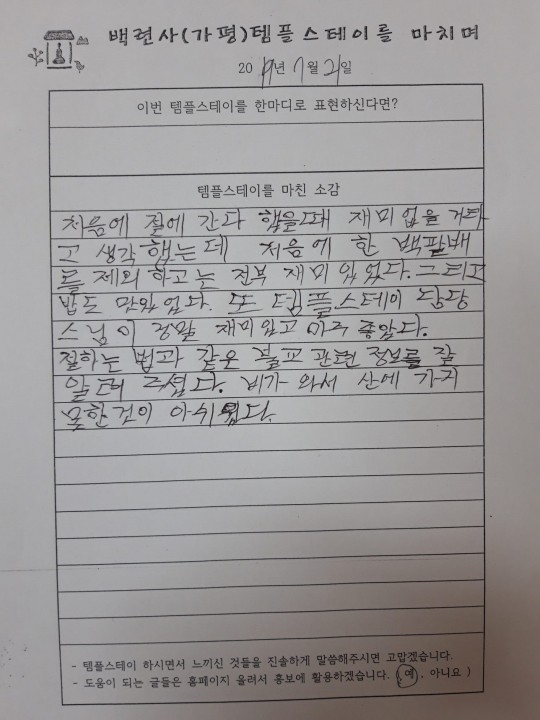 백련사(가평)템플스테이를 마치며
2019년 7월 21일
이번 템플스테이를 한마디로 표현하신다면?
템플스테이를 마친 소감
처음에 절에 간다 했을때 재미없을 거라
고 생각 했는데 처음에 한 백팔배
를 제외하고는 전부 재미있었다. 그리고
밥도 맛있었다. 또 템플스테이 담당
스님이 정말 재미있고 아주 좋았다.
절하는 법과 같은 불교 관련 정보를 잘
알려 주셨다. 비가 와서 산에 가지
못한것이 아쉬웠다.
- 템플스테이 하시면서 느끼신 것들을 진솔하게 말씀해주시면 고맙겠습니다.
- 도움이 되는 글들은 홈페이지 올려서 홍보에 활용하겠습니다. (예, 아니요 )